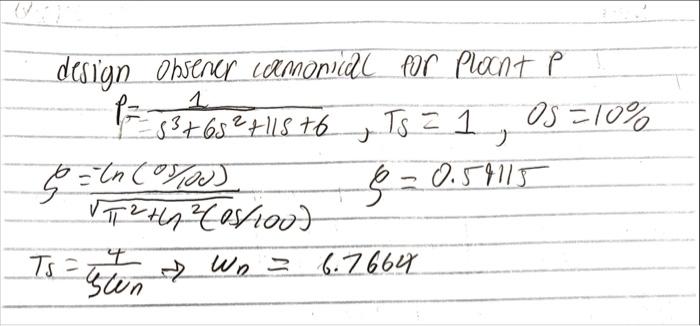 design Observer canonical for Plant P
P = 1 / s³+6s²+11s+6 , Ts = 1 , OS = 10%
ξ = -ln(OS/100) / √π²+ln²(OS/100) ξ = 0.59115
Ts = 4 / ξωn ⇒ ωn = 6.7664